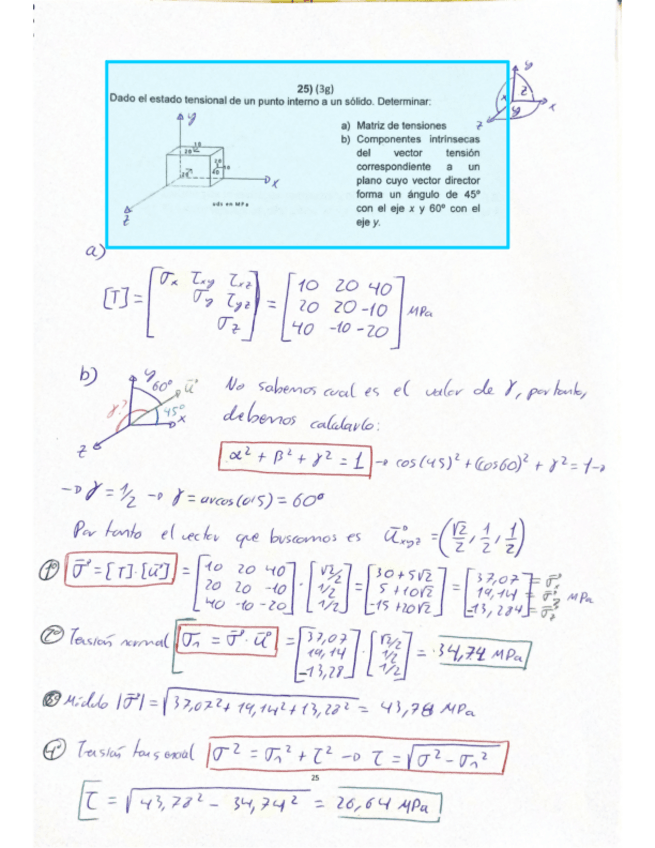 25) (3g)
Dado el estado tensional de un punto interno a un sólido. Determinar:
a) Matriz de tensiones
b) Componentes intrínsecas del vector tensión correspondiente a un plano cuyo vector director forma un ángulo de 45º con el eje x y 60º con el eje y.
y
x
z
10
20
20
10
40
20
uds en MPa
y
z
x
x
y
z
a)
[T] = [σx τxy τxz; σy τyz; σz] = [10 20 40; 20 20 -10; 40 -10 -20] MPa
b)
y 60º ū
γ? 45º x
z
No sabemos cual es el valor de γ, por tanto,
debemos calcularlo:
α² + β² + γ² = 1 → cos(45)² + (cos60)² + γ² = 1 →
→ γ = 1/2 → γ = arcos(0'5) = 60º
Por tanto el vector que buscamos es ūxyz = (√2/2, 1/2, 1/2)
1º σ = [T]·[ū] = [10 20 40; 20 20 -10; 40 -10 -20] · [√2/2; 1/2; 1/2] = [30+5√2; 5+10√2; -15+20√2] = [37,07; 19,14; -13,284] = σx = σy = σz MPa
2º Tensión normal σn = σ · ū = [37,07; 19,14; -13,28] · [√2/2; 1/2; 1/2] = 34,74 MPa
3º Módulo |σ| = √37,07² + 19,14² + 13,28² = 43,78 MPa
4º Tensión tangencial σ² = σn² + τ² → τ = √σ² - σn²
25
τ = √43,78² - 34,74² = 26,64 MPa